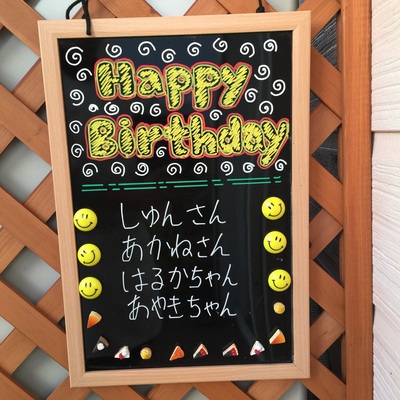 Happy
Birthday
しゅんさん
あかねさん
はるかちゃん
あやきちゃん